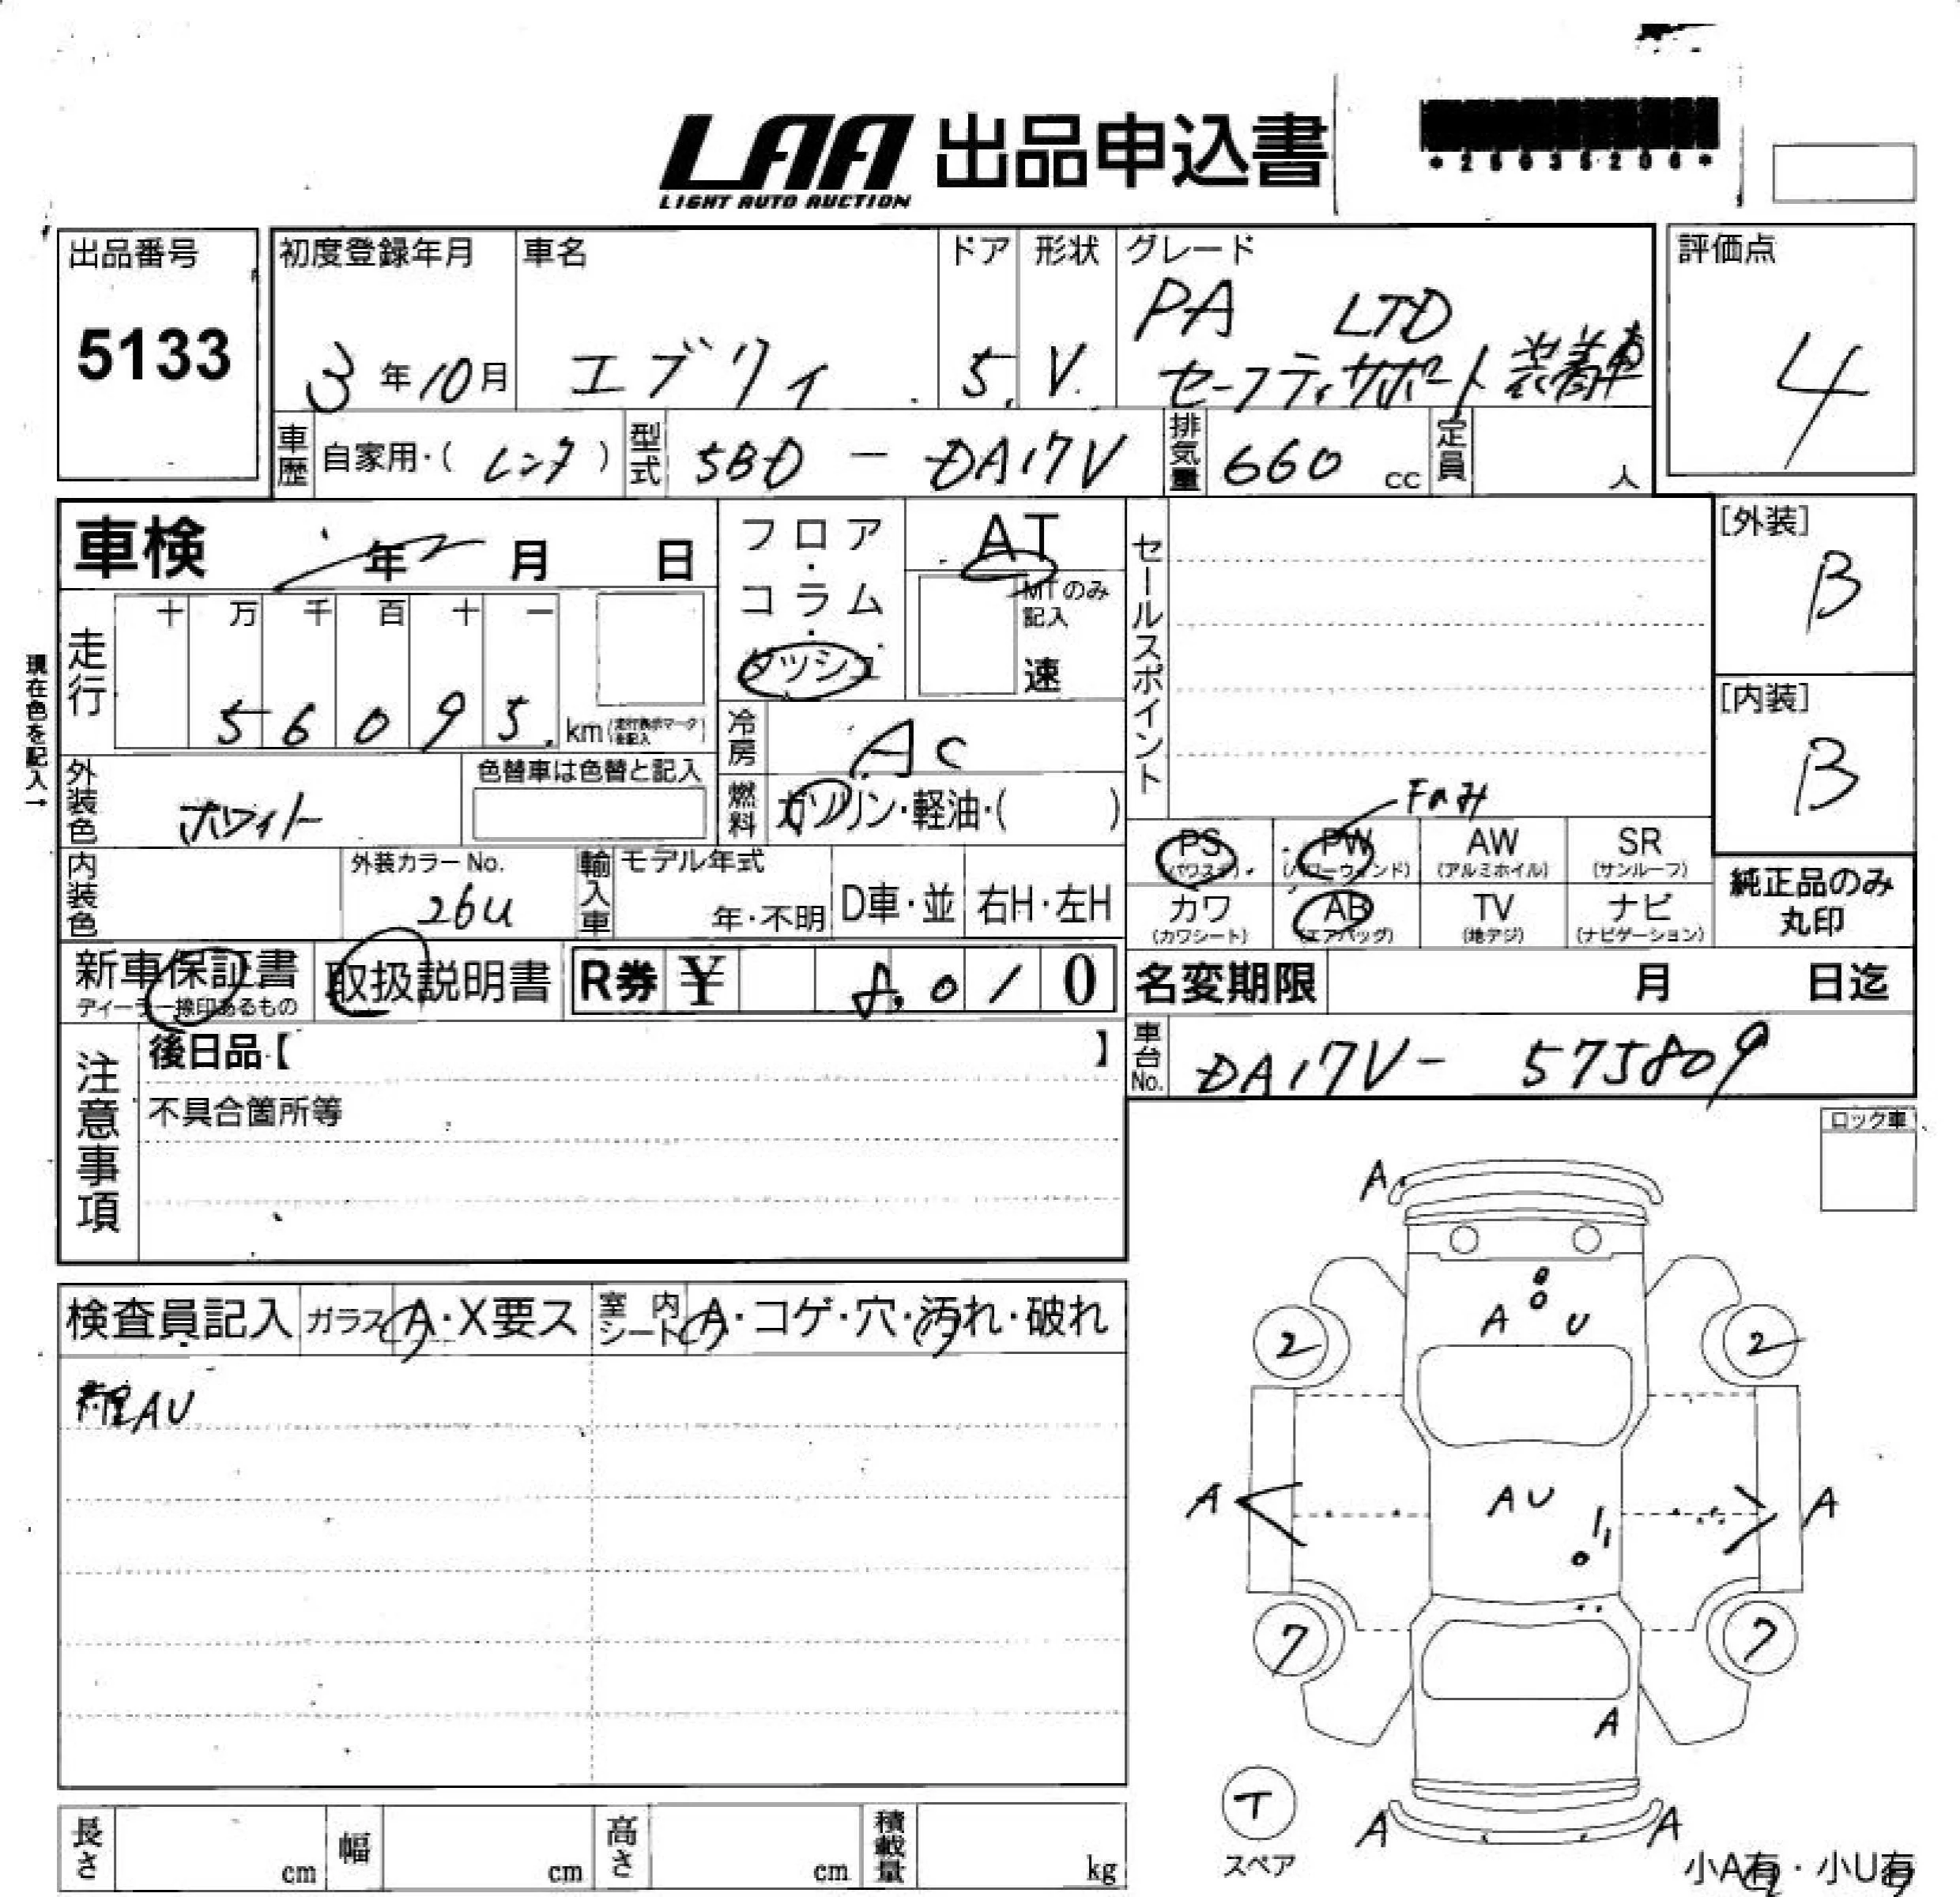 LAA 出品申込書
LIGHT AUTO AUCTION
出品番号
5133
初度登録年月
3年10月
車名
エブリィ
ドア
5
形状
V
グレード
PA LTD
セーフティサポート装着車
評価点
4
車歴 自家用・(レンタ)
型式 5BD - DA17V
排気量 660 cc
定員 人
車検 年 月 日
フロア・コラム・ダッシュ
AT
MTのみ記入
速
セールスポイント
[外装]
B
[内装]
B
現在色を記入→
走行
十 万 千 百 十 一
5 6 0 9 5
km(走行表示マークを記入)
冷房 AC
外装色 ホワイト
色替車は色替と記入
燃料 ガソリン・軽油・( )
Fのみ
PS PW AW SR
(パワステ) (パワーウィンド) (アルミホイル) (サンルーフ)
カワ AB TV ナビ
(カワシート) (エアバッグ) (地デジ) (ナビゲーション)
純正品のみ
丸印
内装色
外装カラーNo.
26U
輸入車
モデル年式
年・不明
D車・並
右H・左H
新車保証書
ディーラー捺印あるもの
取扱説明書
R券 ¥ 8,010
名変期限 月 日迄
車台No. DA17V- 575809
注意事項
後日品【 】
不具合箇所等
ロック車
検査員記入
ガラス A・X要ス
室内シート A・コゲ・穴・汚れ・破れ
AU
A
A U
2 2
A AU A
7 7
A
T
スペア
A A
小A有・小U有
長さ cm
幅 cm
高さ cm
積載量 kg